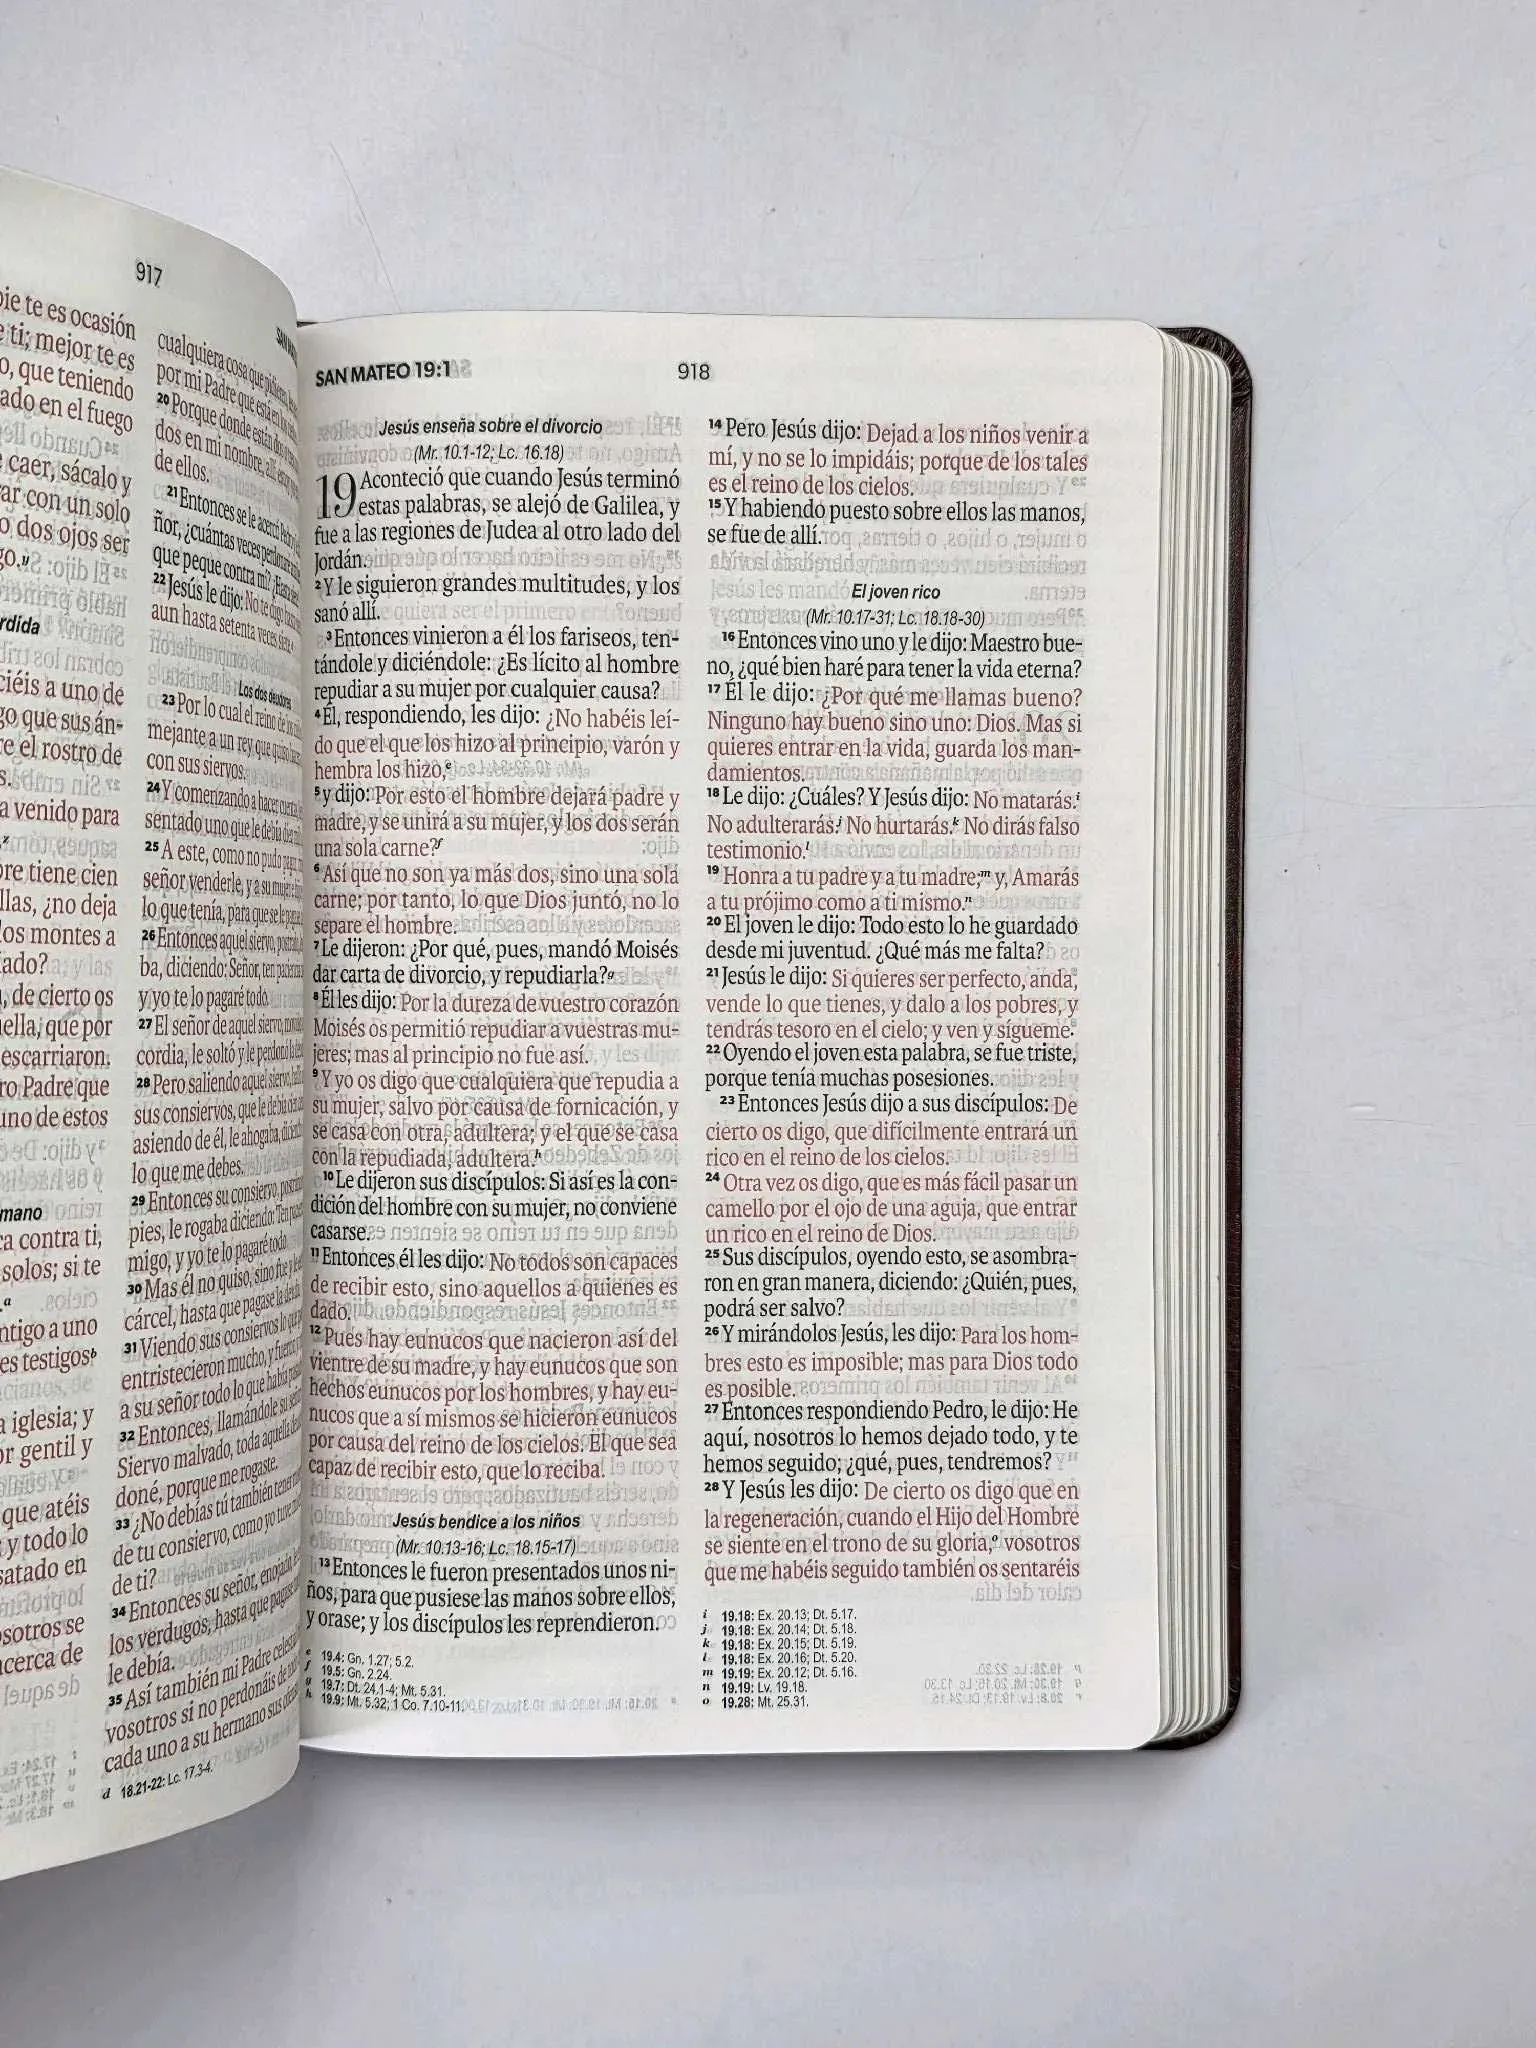 917
pie te es ocasión
ti; mejor te es
que teniendo
ado en el fuego
caer, sácalo y
con un solo
dos ojos ser
rdida
ciéis a uno de
go que sus án-
re el rostro de
a venido para
re tiene cien
llas, ¿no deja
los montes a
de cierto os
ella, que por
escarriaron.
ro Padre que
uno de estos
mano
ca contra ti,
solos; si te
ntigo a uno
es testigos
a iglesia; y
or gentil y
que atéis
y todo lo
satado en
osotros se
acerca de
cualquiera cosa que
por mi Padre que está en los
20 Porque donde están dos o
dos en mi nombre, allí
de ellos.
21 Entonces se le acercó Pedro y
ñor, ¿cuántas veces perdonaré
que peque contra mí? ¿Hasta
22 Jesús le dijo: No te digo hasta
aun hasta setenta veces siete.
Los dos deudores
23 Por lo cual el reino de los
mejante a un rey que quiso
con sus siervos.
24 Y comenzando a hacer cuentas,
sentado uno que le debía diez mil
25 A este, como no pudo pagar,
señor venderle, y a su mujer e
lo que tenía, para que se le
26 Entonces aquel siervo, postrado,
ba, diciendo: Señor, ten paciencia
y yo te lo pagaré todo.
27 El señor de aquel siervo,
cordia, le soltó y le perdonó la
28 Pero saliendo aquel siervo,
sus consiervos, que le debía cien
asiendo de él, le ahogaba, diciendo:
lo que me debes.
29 Entonces su consiervo,
pies, le rogaba diciendo: Ten
migo, y yo te lo pagaré todo.
30 Mas él no quiso, sino fue y le
cárcel, hasta que pagase la deuda.
31 Viendo sus consiervos lo que
entristecieron mucho, y fueron
a su señor todo lo que había
32 Entonces, llamándole su señor,
Siervo malvado, toda aquella
doné, porque me rogaste.
33 ¿No debías tú también tener
de tu consiervo, como yo tuve
de ti?
34 Entonces su señor, enojado,
los verdugos, hasta que pagase
le debía.
35 Así también mi Padre celestial
vosotros si no perdonáis de todo
cada uno a su hermano sus
d 18.21-22: Lc. 17.3-4.
SAN MATEO 19:1
918
Jesús enseña sobre el divorcio
(Mr. 10.1-12; Lc. 16.18)
19 Aconteció que cuando Jesús terminó
estas palabras, se alejó de Galilea, y
fue a las regiones de Judea al otro lado del
Jordán.
2 Y le siguieron grandes multitudes, y los
sanó allí.
3 Entonces vinieron a él los fariseos, ten-
tándole y diciéndole: ¿Es lícito al hombre
repudiar a su mujer por cualquier causa?
4 Él, respondiendo, les dijo: ¿No habéis leí-
do que el que los hizo al principio, varón y
hembra los hizo,e
5 y dijo: Por esto el hombre dejará padre y
madre, y se unirá a su mujer, y los dos serán
una sola carne?f
6 Así que no son ya más dos, sino una sola
carne; por tanto, lo que Dios juntó, no lo
separe el hombre.
7 Le dijeron: ¿Por qué, pues, mandó Moisés
dar carta de divorcio, y repudiarla?g
8 Él les dijo: Por la dureza de vuestro corazón
Moisés os permitió repudiar a vuestras mu-
jeres; mas al principio no fue así.
9 Y yo os digo que cualquiera que repudia a
su mujer, salvo por causa de fornicación, y
se casa con otra, adultera; y el que se casa
con la repudiada, adultera.h
10 Le dijeron sus discípulos: Si así es la con-
dición del hombre con su mujer, no conviene
casarse.
11 Entonces él les dijo: No todos son capaces
de recibir esto, sino aquellos a quienes es
dado.
12 Pues hay eunucos que nacieron así del
vientre de su madre, y hay eunucos que son
hechos eunucos por los hombres, y hay eu-
nucos que a sí mismos se hicieron eunucos
por causa del reino de los cielos. El que sea
capaz de recibir esto, que lo reciba.
Jesús bendice a los niños
(Mr. 10.13-16; Lc. 18.15-17)
13 Entonces le fueron presentados unos ni-
ños, para que pusiese las manos sobre ellos,
y orase; y los discípulos les reprendieron.
e 19.4: Gn. 1.27; 5.2.
f 19.5: Gn. 2.24.
g 19.7: Dt. 24.1-4; Mt. 5.31.
h 19.9: Mt. 5.32; 1 Co. 7.10-11.
14 Pero Jesús dijo: Dejad a los niños venir a
mí, y no se lo impidáis; porque de los tales
es el reino de los cielos.
15 Y habiendo puesto sobre ellos las manos,
se fue de allí.
El joven rico
(Mr. 10.17-31; Lc. 18.18-30)
16 Entonces vino uno y le dijo: Maestro bue-
no, ¿qué bien haré para tener la vida eterna?
17 Él le dijo: ¿Por qué me llamas bueno?
Ninguno hay bueno sino uno: Dios. Mas si
quieres entrar en la vida, guarda los man-
damientos.
18 Le dijo: ¿Cuáles? Y Jesús dijo: No matarás.i
No adulterarás.j No hurtarás.k No dirás falso
testimonio.l
19 Honra a tu padre y a tu madre;m y, Amarás
a tu prójimo como a ti mismo.n
20 El joven le dijo: Todo esto lo he guardado
desde mi juventud. ¿Qué más me falta?
21 Jesús le dijo: Si quieres ser perfecto, anda,
vende lo que tienes, y dalo a los pobres, y
tendrás tesoro en el cielo; y ven y sígueme.
22 Oyendo el joven esta palabra, se fue triste,
porque tenía muchas posesiones.
23 Entonces Jesús dijo a sus discípulos: De
cierto os digo, que difícilmente entrará un
rico en el reino de los cielos.
24 Otra vez os digo, que es más fácil pasar un
camello por el ojo de una aguja, que entrar
un rico en el reino de Dios.
25 Sus discípulos, oyendo esto, se asombra-
ron en gran manera, diciendo: ¿Quién, pues,
podrá ser salvo?
26 Y mirándolos Jesús, les dijo: Para los hom-
bres esto es imposible; mas para Dios todo
es posible.
27 Entonces respondiendo Pedro, le dijo: He
aquí, nosotros lo hemos dejado todo, y te
hemos seguido; ¿qué, pues, tendremos?
28 Y Jesús les dijo: De cierto os digo que en
la regeneración, cuando el Hijo del Hombre
se siente en el trono de su gloria,o vosotros
que me habéis seguido también os sentaréis
i 19.18: Ex. 20.13; Dt. 5.17.
j 19.18: Ex. 20.14; Dt. 5.18.
k 19.18: Ex. 20.15; Dt. 5.19.
l 19.18: Ex. 20.16; Dt. 5.20.
m 19.19: Ex. 20.12; Dt. 5.16.
n 19.19: Lv. 19.18.
o 19.28: Mt. 25.31.